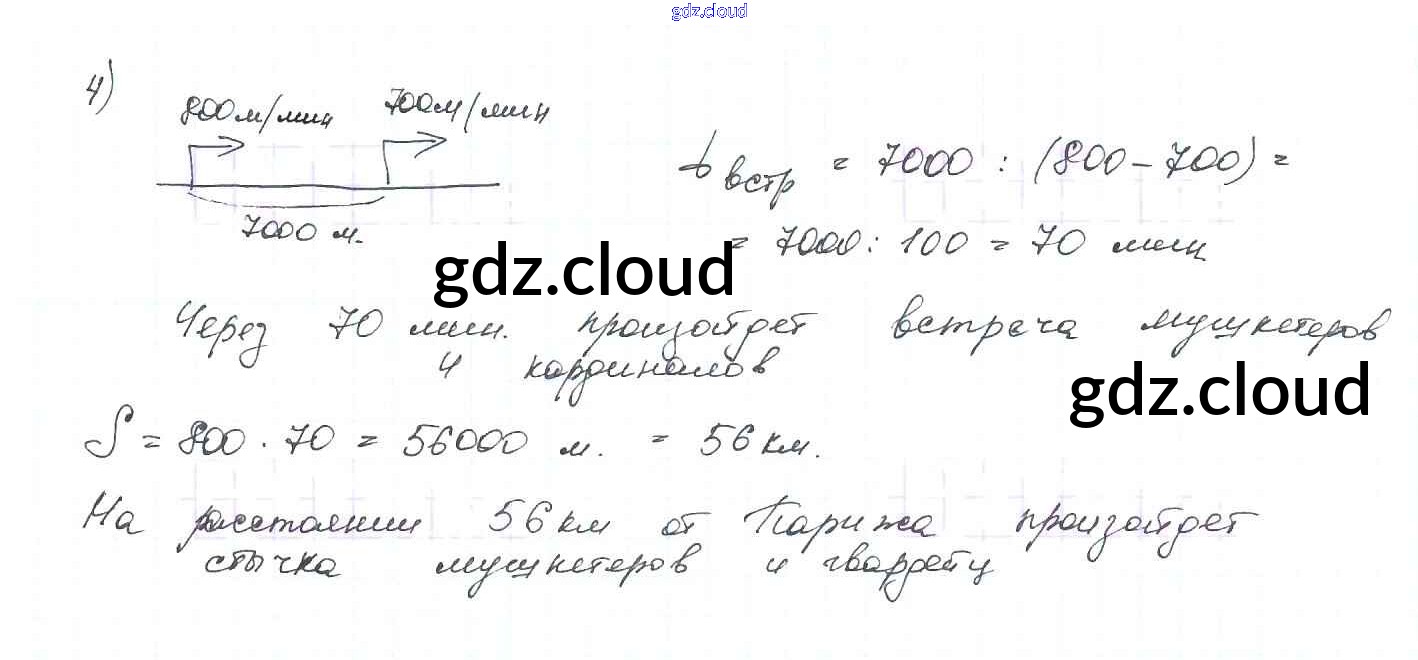 gdz.cloud
4)
800 м/мин 700 м/мин
7000 м.
t встр = 7000 : (800 - 700) =
= 7000 : 100 = 70 мин
gdz.cloud
Через 70 мин. произойдет встреча мушкетеров
и кардиналов
gdz.cloud
S = 800 · 70 = 56000 м. = 56 км.
На расстоянии 56 км от Парижа произойдет
стычка мушкетеров и гвардейц